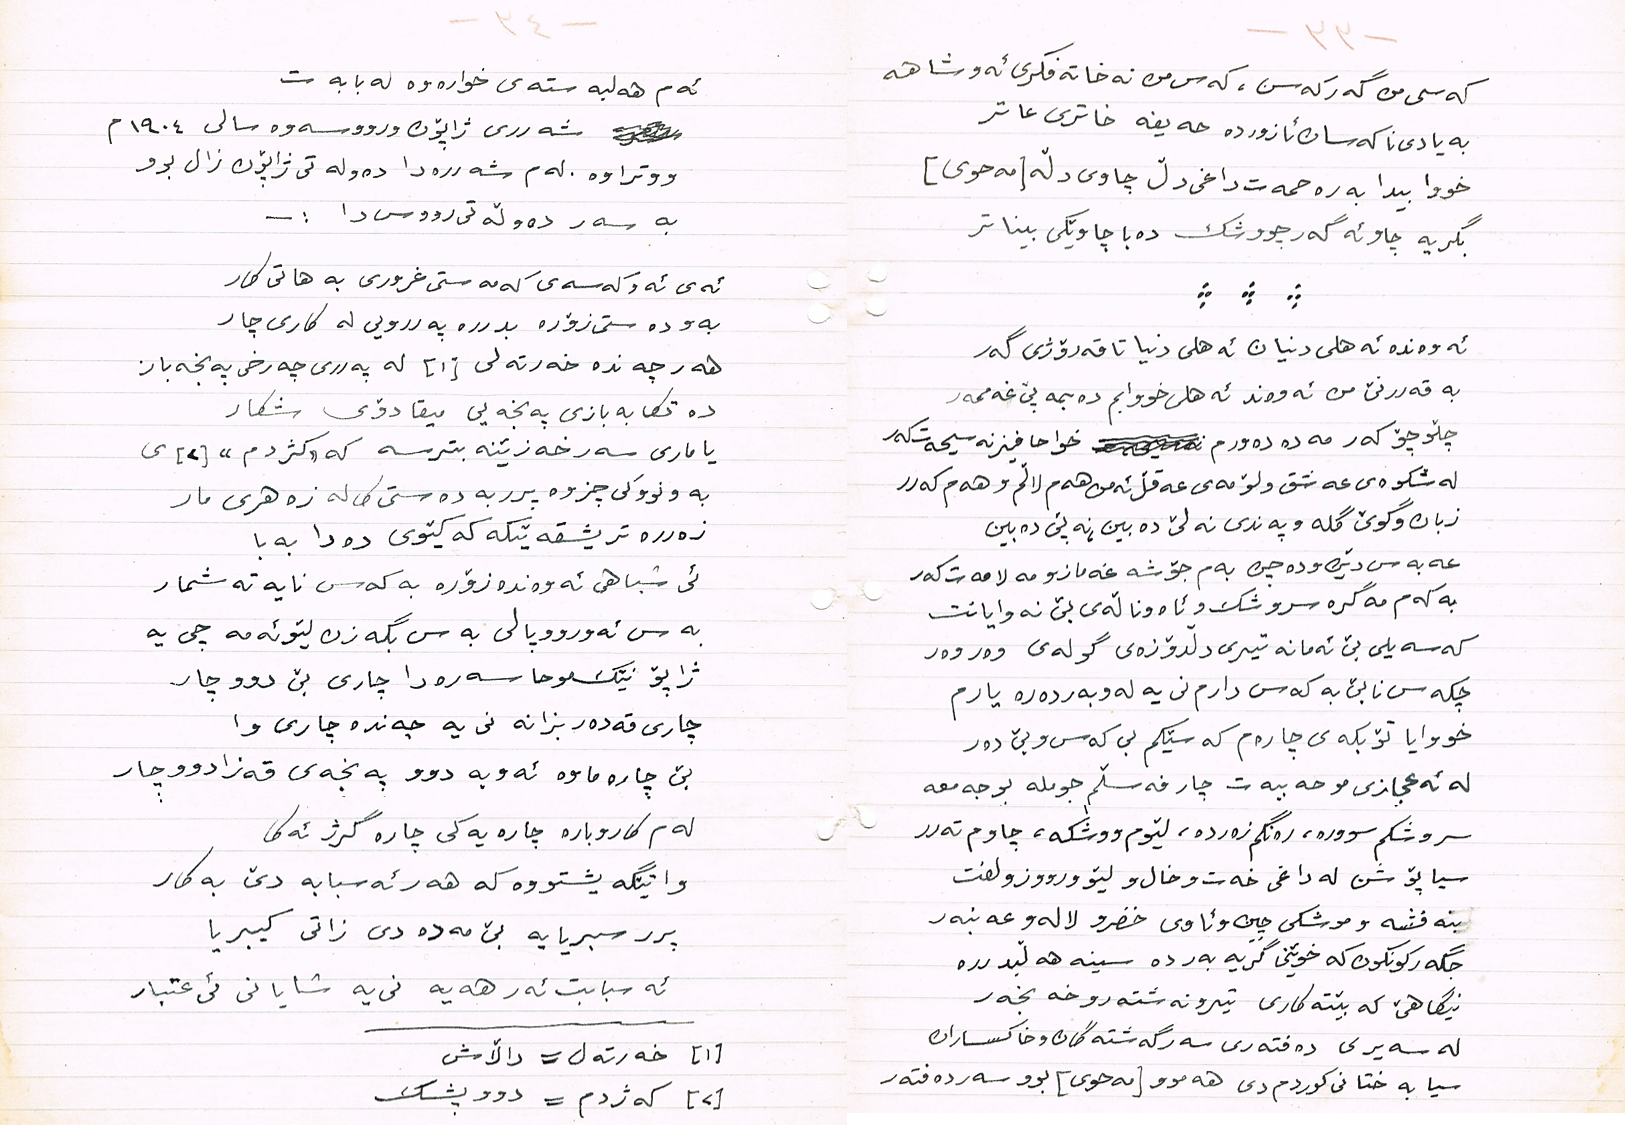 - ٣٣ -
کەسی من گەر کەسن ، کەس من نەخاتە فکری ئەو شاهە
بە یادی ناکەسان ئازوردە حەیفە خاتری عاتر
خووا بیدا بە رەحمەت داغی دڵ چاوی دڵە [مەحوی]
بگریە چاو ئەگەر چوو شک دەبا چاوێکی بیناتر
ئەوەندە ئەهلی دنیان ئەهلی دنیا تا قەرۆژی گەر
بە قەررنێ من ئەوەند ئەهلی خووابم دەبمە پێغەمەر
چلۆچۆ کەر مەدە دەورم خواحافیز نەسیحەت کەر
لە شکوەی عەشق ولۆمەی عەقڵ ئەمن هەم لاڵم و هەم کەرر
زبان و گوێ گلە و پەندی نە لێ دەبین نە پێ دەبین
عەبەس دێن و دەچن بەم جۆشە غەماز و مەلامەت کەر
بە کەم مەگرە سروشک و ئاە و ناڵەی بێ نەوایانت
کە سەیلی بێ ئەمانە تیری دڵدۆزەی گولەی وەروەر
چکەس نابێ بە کەس دارم نی یە لەو بەردەرە یارم
خووایا تۆ بکەی چارەم کە سێکم بی کەس و بێ دەر
لە ئەعجازی موحەببەت چار فەسڵم جوملە بو جەمعە
سروشکم سوورە، رەنگم زەردە، لێوم ووشکە، چاوم تەرر
سیا پۆشن لە داغی خەت و خال و لێو و رووز و لفت
بنەفشە و موشکی چین و ئاوی خضر و لالە و عەنبەر
جگەر کونکون کە خوێنی گریە بەردە سینە هەڵبدررە
نیگاهێ کە بێتە کاری تیر و نەشتەر و خەنجەر
لە سەیری دەفتەری سەرگەشتەگان و خاکساران
سیا بە ختانی کوردم دی هەموو [مەحوی] بوو سەر دەفتەر
- ٣٤ -
ئەم هەلبەستەی خوارەوە لە بابەت
شەرری ژاپۆن و رووسەوە سالی ١٩٠٤ م
ووتراوە . لەم شەررەدا دەولەتی ژاپۆن زال بوو
بە سەر دەوڵەتی رووس دا : —
ئەی ئەو کەسەی کە مەستی غروری بە هاتی کار
بەو دەستی زۆرە بدررە پەررویی لە کاری چار
هەر چەندە خەرتەلی [١] لە پەرری چەرخی پەنجە باز
دە تکا بە بازی پەنجەیی میقادۆی شکار
یا ماری سەر خەزێنە بترسە کە «کژدم» [٢] ی
بەو نووکی چزوە پرر بە دەستی کا لە زەهری مار
زەررە تریشقەیێکە کە کێوی دەدا بە با
ئی شباهی ئەوەندە زۆرە بە کەس نایەتە شمار
بەس ئەوروپالی بەس بگەزن لێو ئەمە چی یە
ژاپۆنێک موحاسەرەدا چاری بێ دووچار
چاری قەدەر بزانە نی یە چەندە چاری وا
بێ چارە ماوە ئەوبە دوو پەنجەی قەزا دووچار
لەم کاروبارە چارە یەکی چارە گرژ ئەکا
وا تێگەیشتووە کە هەر ئەسبابە دێ بە کار
پرر سیبریا یە بێ مەدەدی زاتی کیبریا
ئەسبابت ئەر هەیە نی یە شایانی ئی عتبار
[١] خەرتەل = داڵاش
[٢] کەژدم = دووپشک